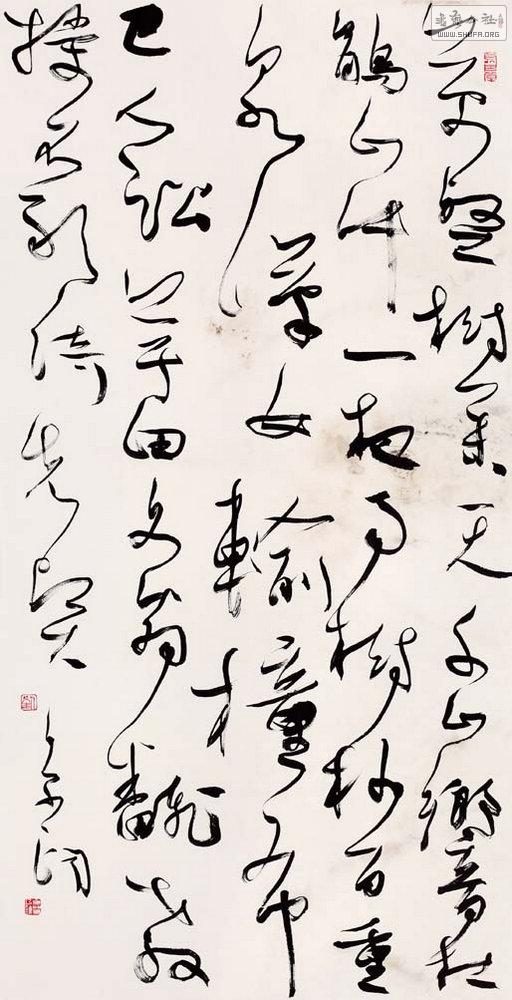 WWW.SHUFA.ORG
万壑樹參天千山響杜
鵑山中一夜雨樹杪百重
泉漢女輸橦布
巴人訟芋田文翁翻教
授不敢倚先賢